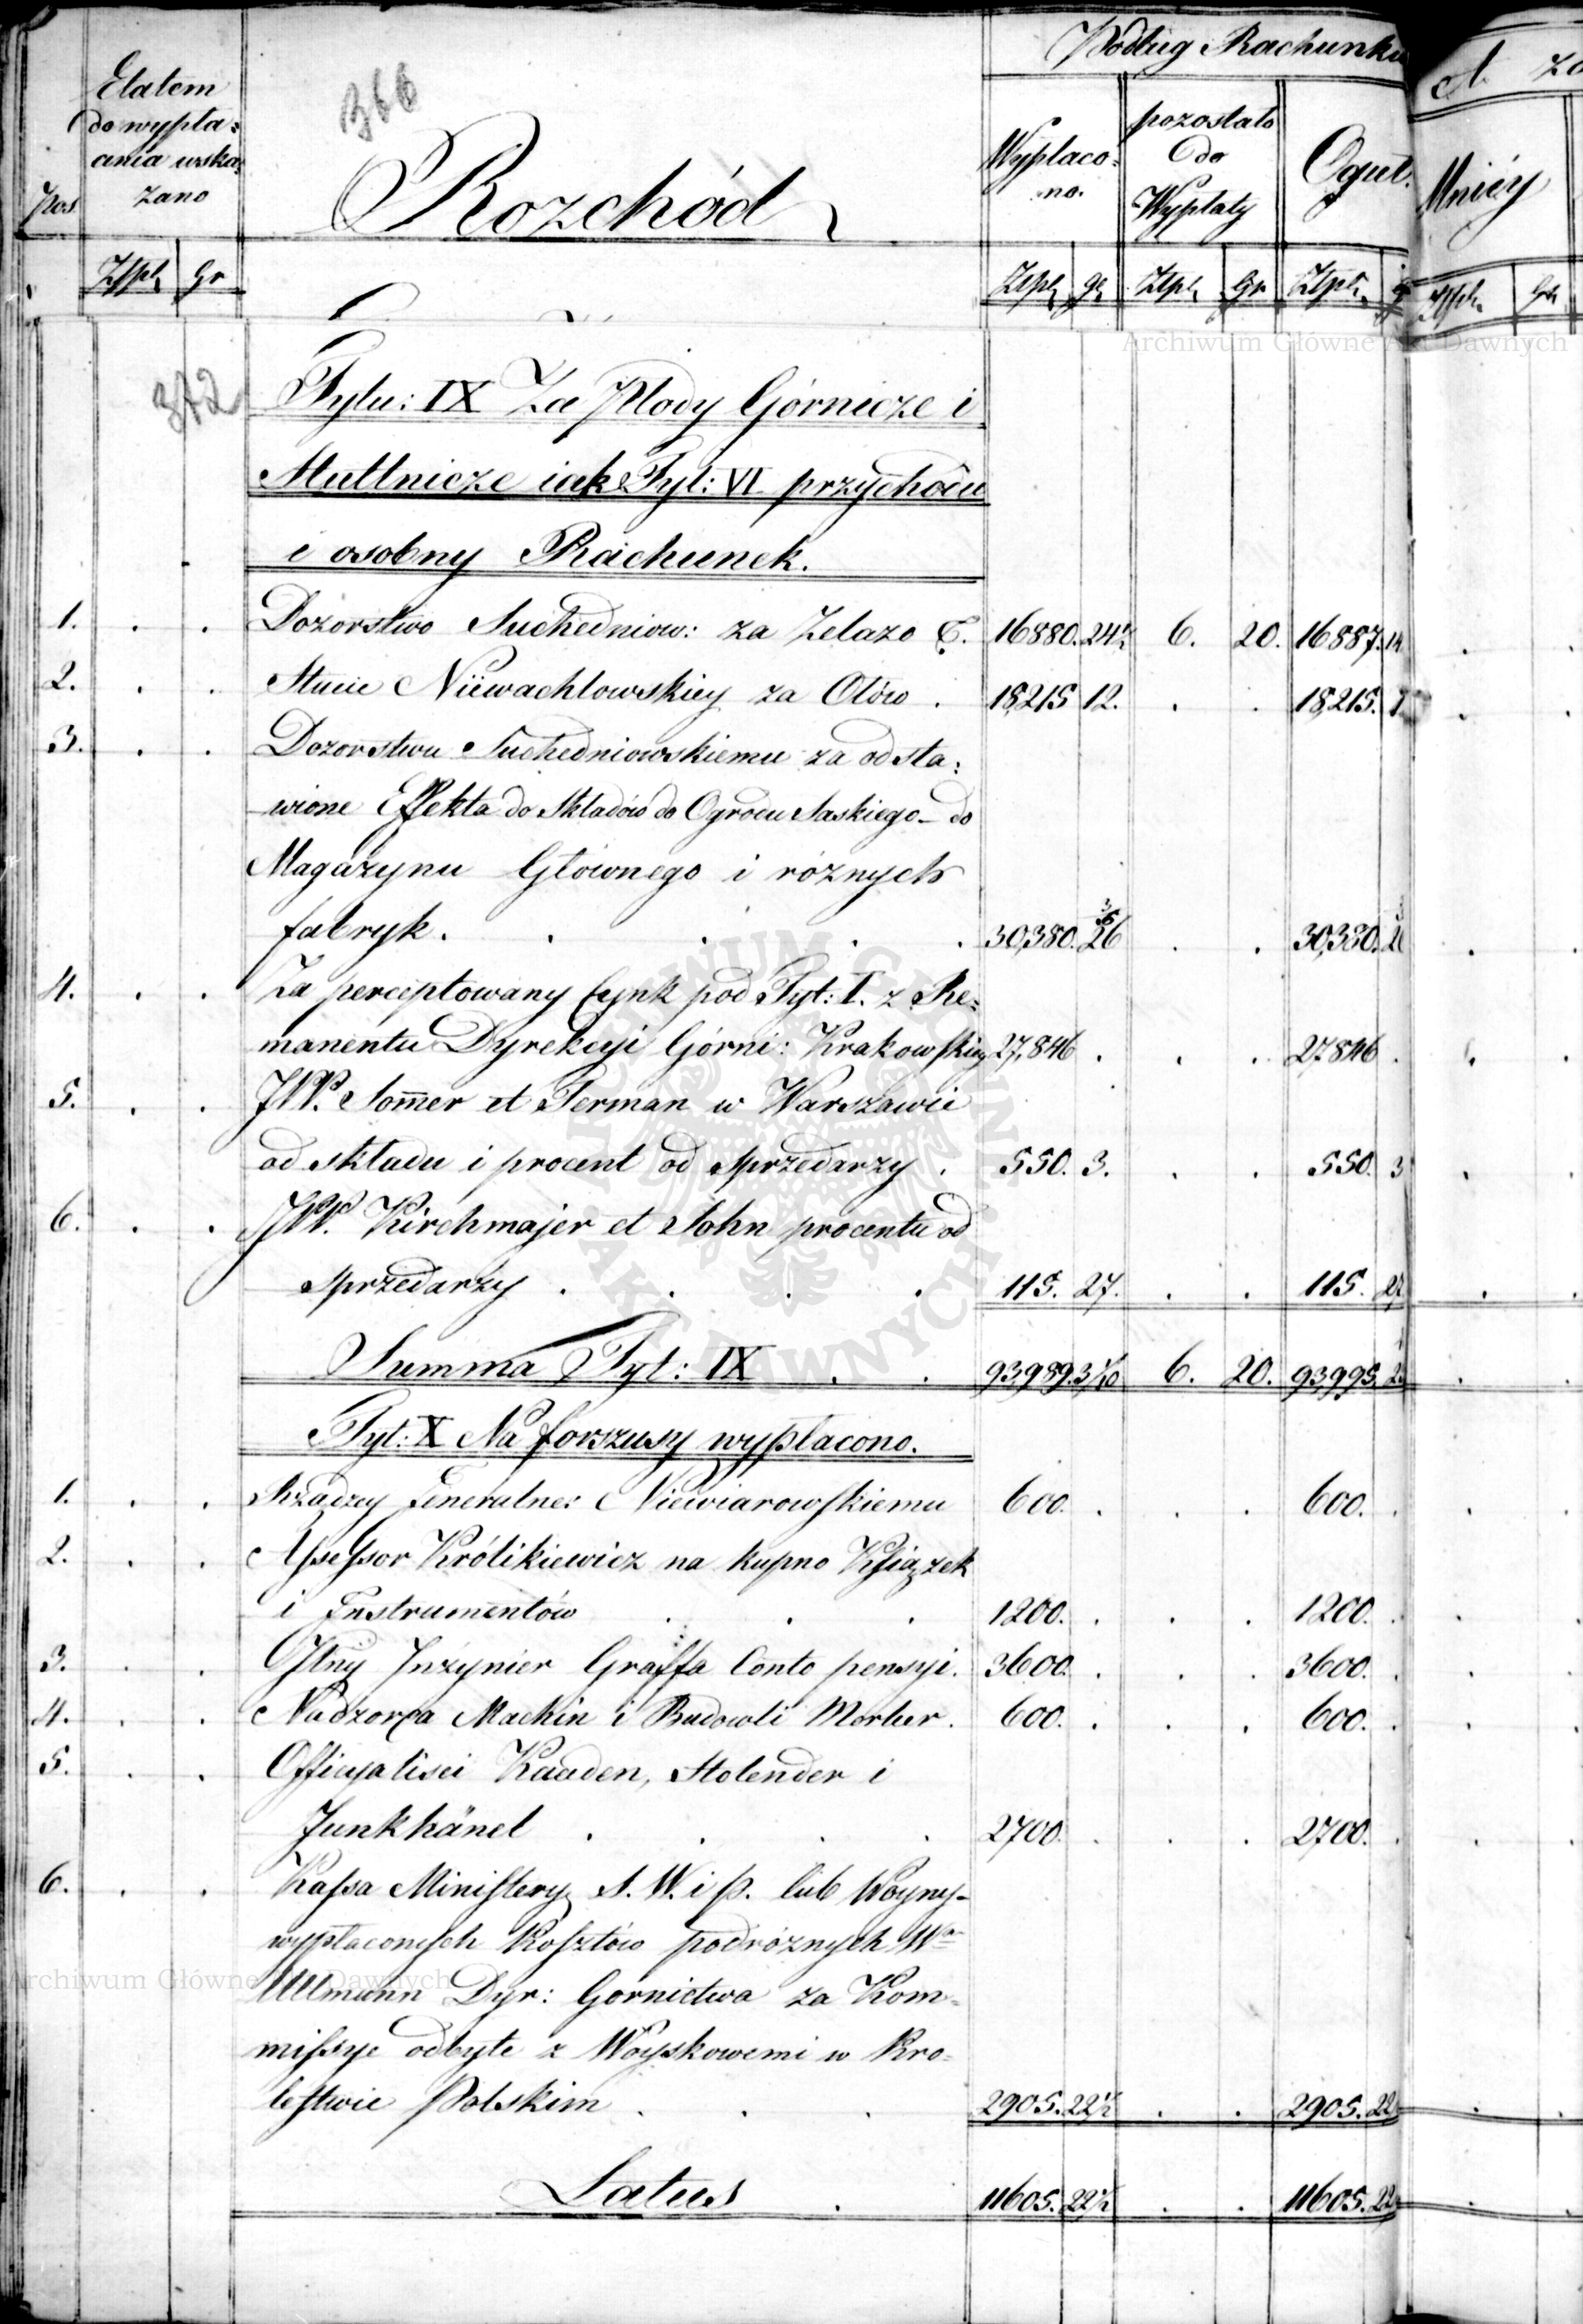 Etatem
do wypła=
cania wska=
zano
Pos
Ztpl. Gr
366
Rozchód
Podług Rachunku
Wypłaco=
no.
pozostało
do
Wypłaty
Oguł.
Mniéy
Ztpl. gr. Ztpl. Gr Ztpl. Ztpl. Gr
372
Tytu: IX Za Płody Górnicze i
Huttnicze iak Tyt: VI przychodu
i osobny Rachunek.
1. . . Dozorstwo Suchedniow: za Zelazo 16880. 24½ 6. 20. 16887. 14
2. . . Hucie Niewachlowskiey za Ołów . 18,215 12. . . 18,215.
3. . . Dozorstwu Suchedniowskiemu za odsta=
wione Effekta do Składów do Ogrodu Saskiego - do
Magazynu Głównego i różnych
fabryk. . . . . 30,380. 26 . . 30,380.
4. . . Za perceptowany Cynk pod Tyt: I. z Re=
manentu Dyrekcyi Górni: Krakowskiey 27,846 . . . 27846 .
5. . . JPP. Som̄er et Terman w Warszawie
od składu i procent od Sprzedarzy . 550. 3. . . 550. 3
6. . . JPP. Kirchmajer et John procentu od
Sprzedarzy . . . . 115. 27. . . 115. 27
Summa Tyt: IX . . 93,989. 3 6. 20. 93,995.
Tyt: X Na forszusy wypłacono.
1. . . Rządzcy Generalne: Niewiarowskiemu 600. . . . 600. .
2. . . Assessor Królikiewicz na kupno Książek
i Instrumentów . . . 1200. . . . 1200. .
3. . . Inżynier Graffa Conto pensyi. 3600. . . . 3600. .
4. . . Nadzorca Machin i Budowli Merker. 600. . . . 600. .
5. . . Officyalisci Kaaden, Holender i
Junkhänel . . . . 2700. . . . 2700. .
6. . . Kassa Ministery S. W. i P. lub Woyny
wypłaconych Kosztów podróżnych
Ullmann Dyr: Gornictwa za Kom=
missye odbyte z Woyskowemi w Kro=
lestwie Polskim . . . 2905. 22½ . . 2905. 22
Latus . 11605. 22½ . . 11605. 22
Archiwum Główne Akt Dawnych
Archiwum Główne Akt Dawnych
ARCHIWUM GŁÓWNE AKT DAWNYCH